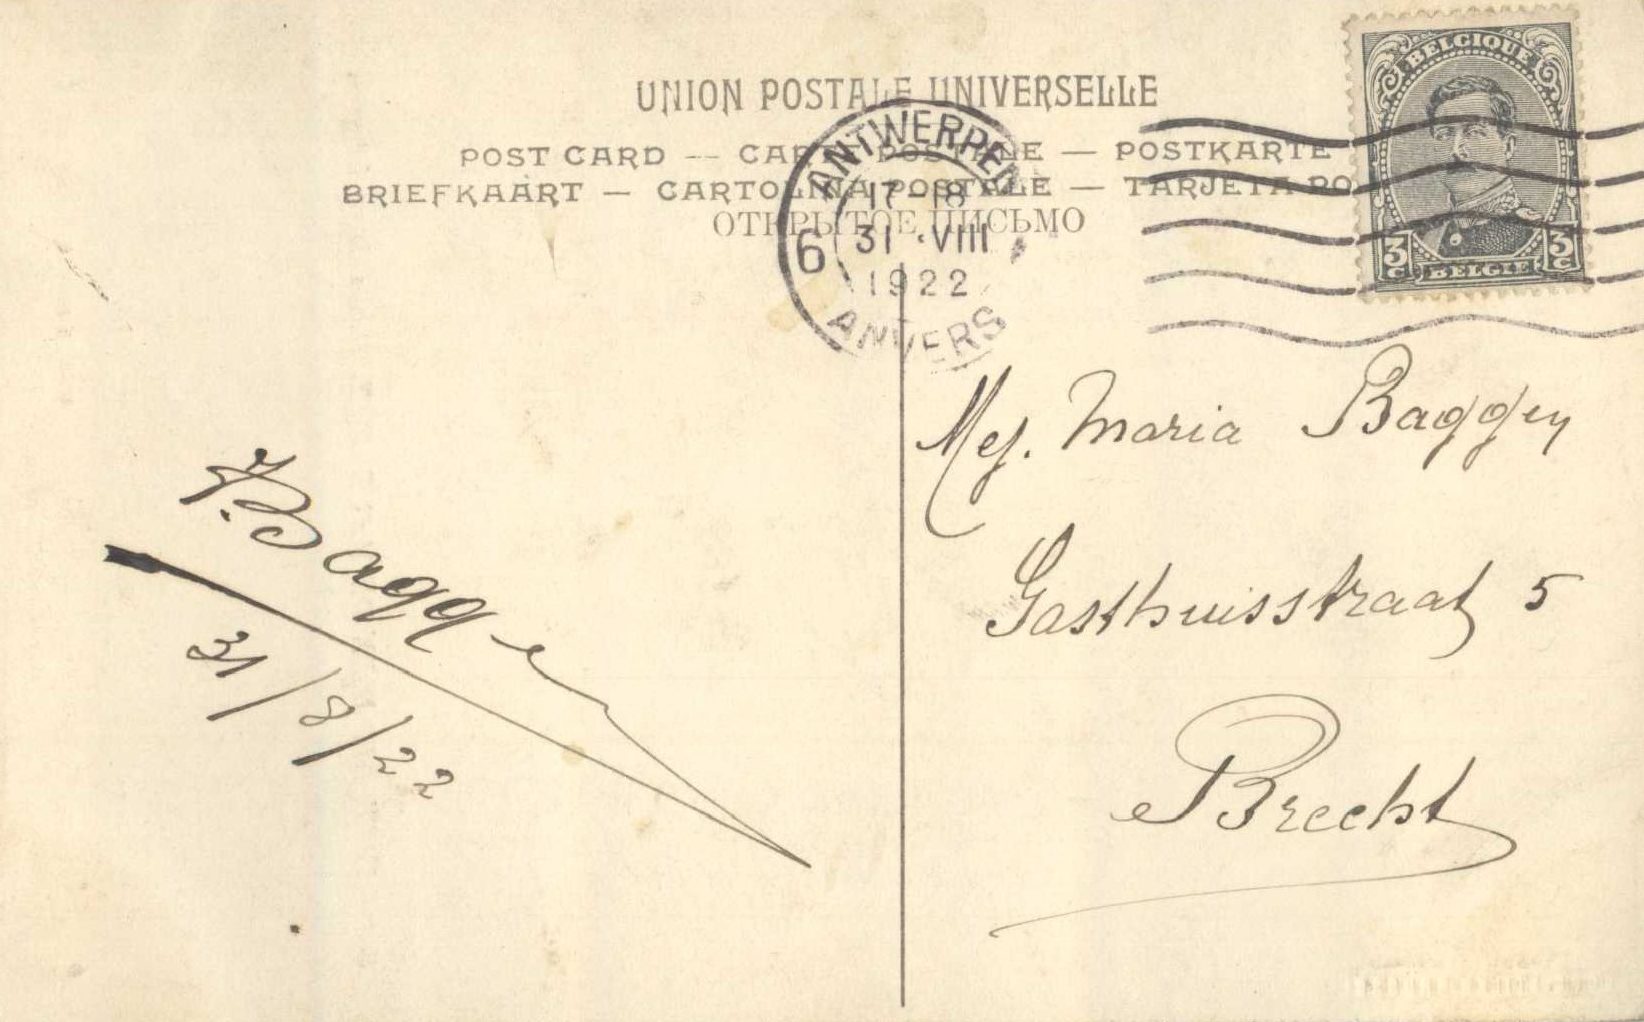 UNION POSTALE UNIVERSELLE
POST CARD -- CARTE POSTALE — POSTKARTE
BRIEFKAART — CARTOLINA POSTALE — TARJETA PO
ОТКРЫТОЕ ПИСЬМО
ANTWERPEN
17-18
6 31 ·VIII
1922
ANVERS
BELGIQUE
3C BELGIË 3C
Mej. Maria Baggen
Gasthuisstraat 5
Brecht
Baggen
31/8/22